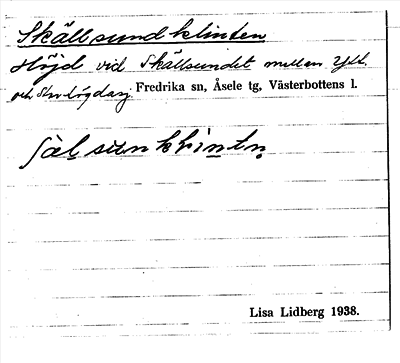 Skällsundklinten
Höjd vid Skällsundet mellan Ytt.
och Fredrika sn, Åsele tg, Västerbottens l.
Lisa Lidberg 1938.